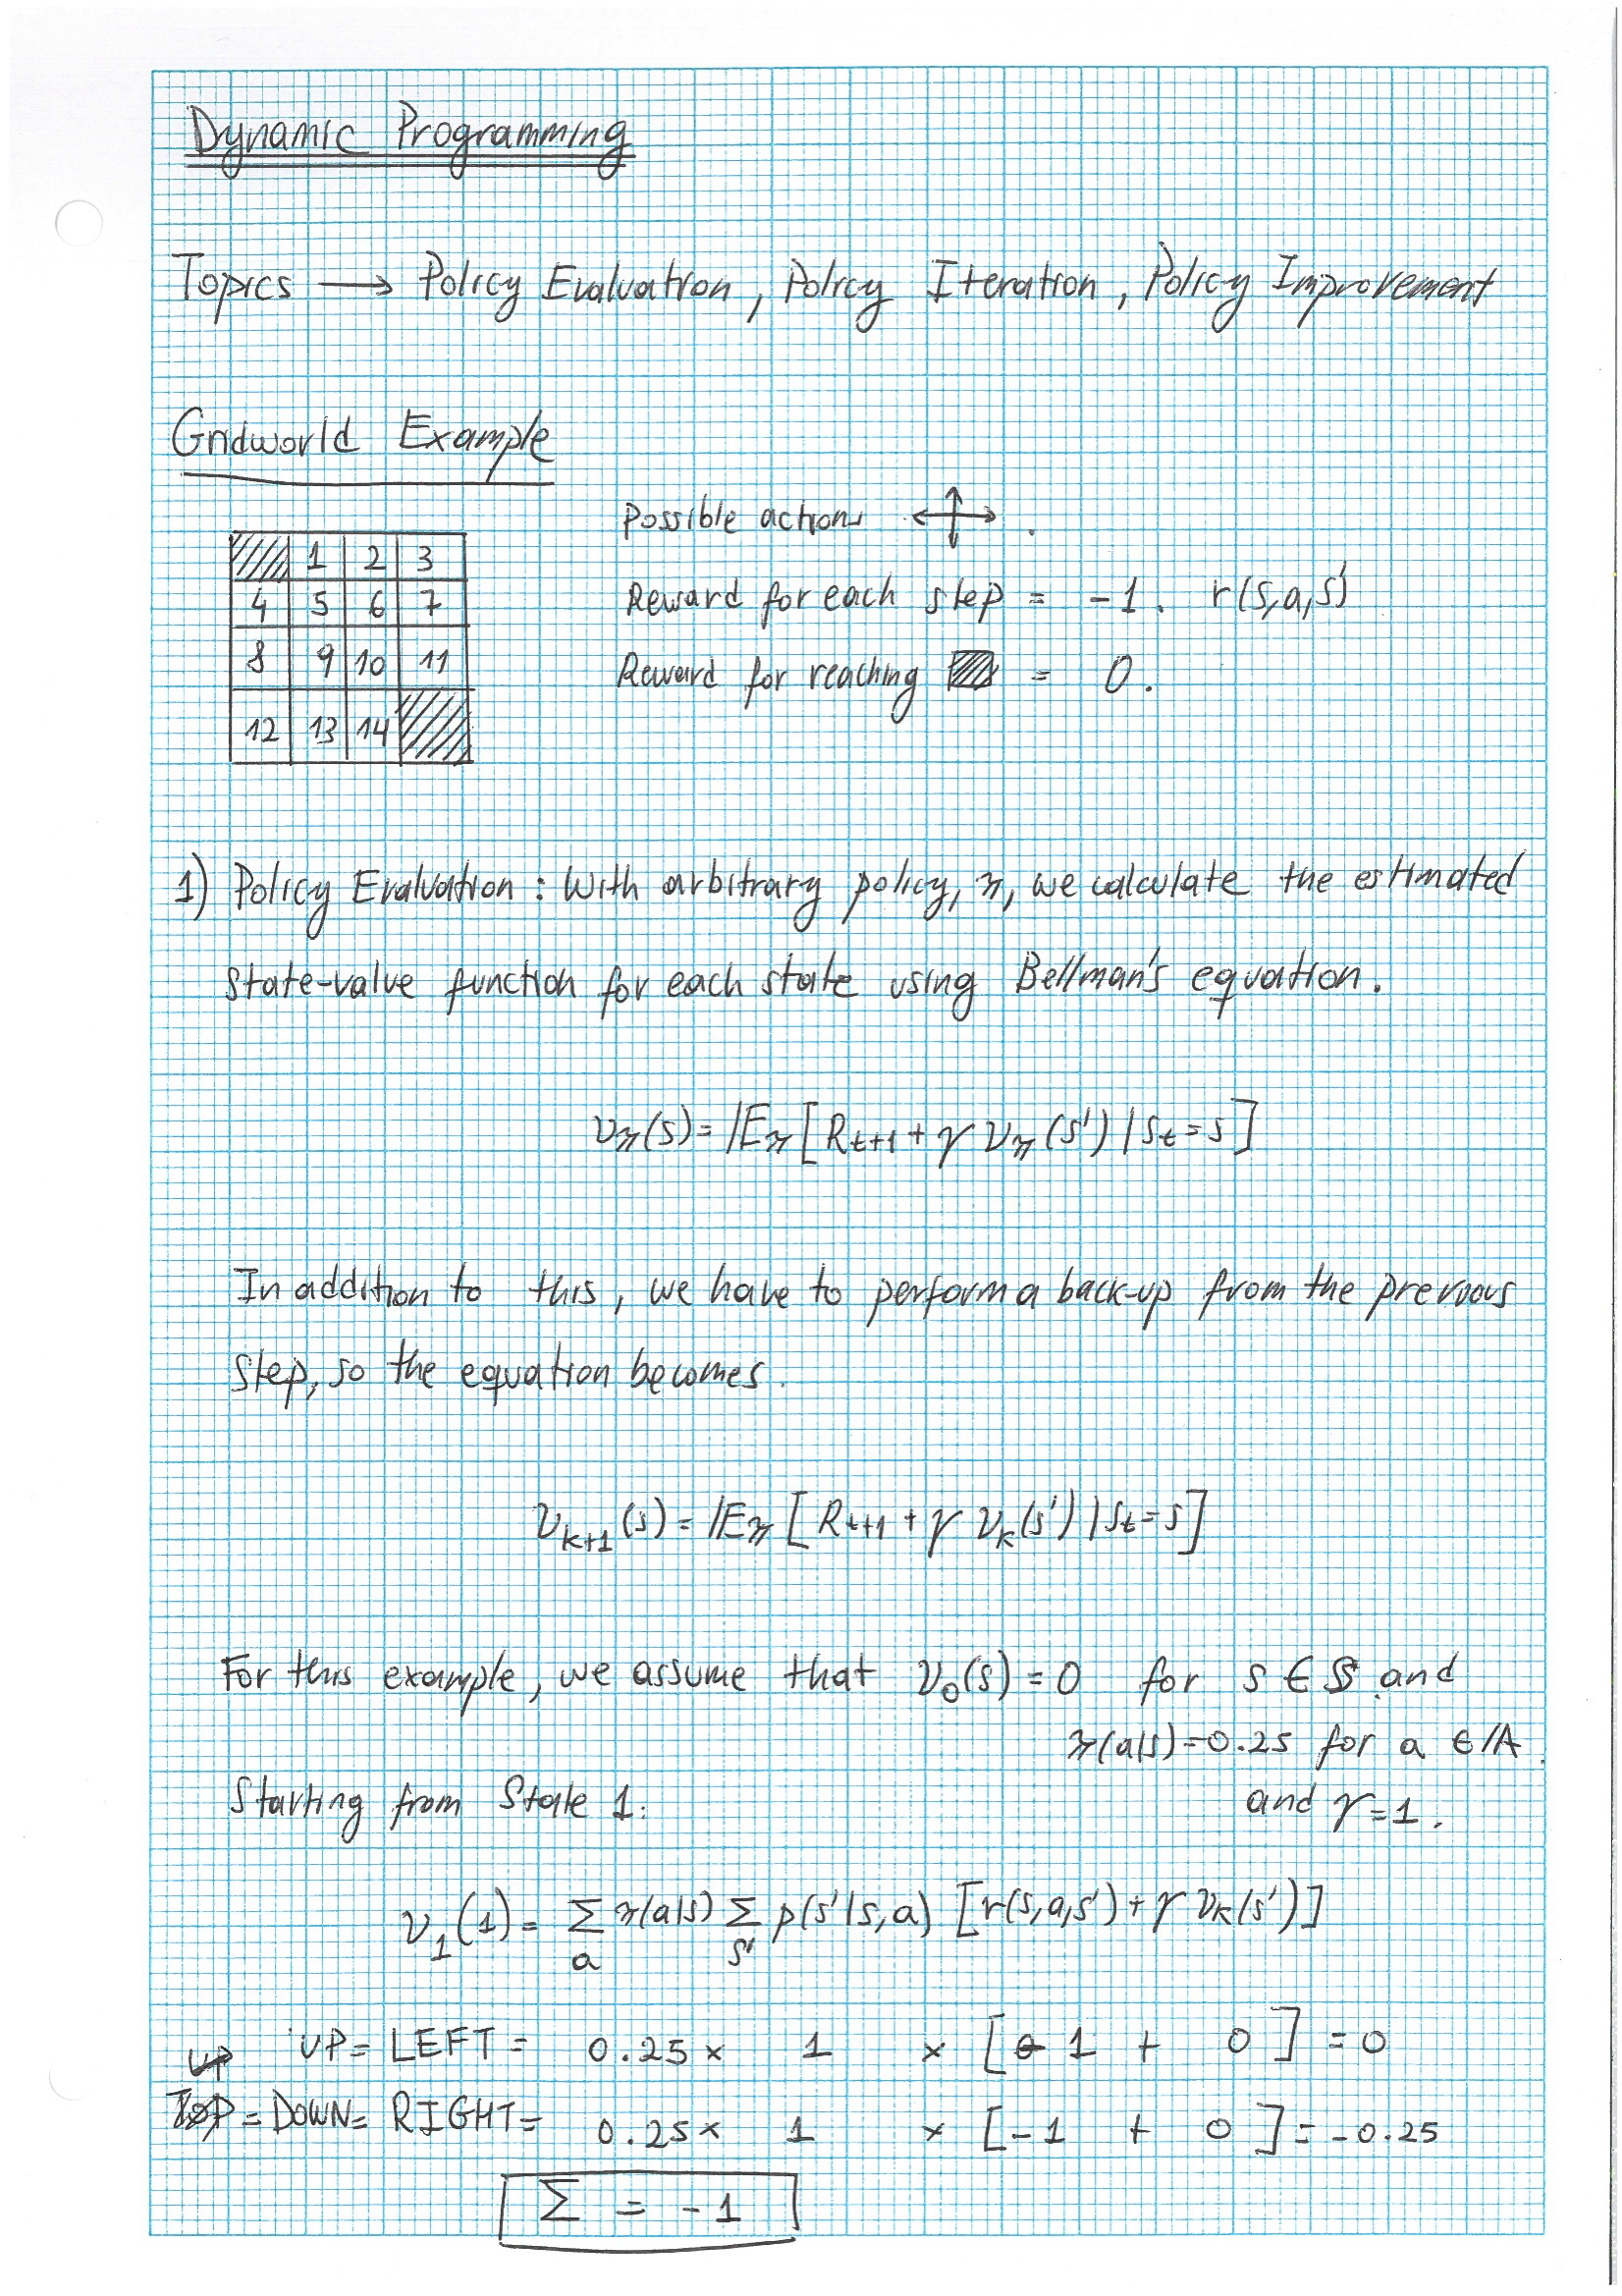 Dynamic Programming
Topics → Policy Evaluation, Policy Iteration, Policy Improvement
Gridworld Example
Possible actions
1 2 3
4 5 6 7
8 9 10 11
12 13 14
Reward for each step = -1. r(s,a,s')
Reward for reaching = 0.
1) Policy Evaluation: With arbitrary policy, π, we calculate the estimated
state-value function for each state using Bellman's equation.
υπ(s) = Eπ[Rt+1 + γ υπ(s') | St=s]
In addition to this, we have to perform a back-up from the previous
step, so the equation becomes.
υk+1(s) = Eπ[Rt+1 + γ υk(s') | St=s]
For this example, we assume that υ0(s) = 0 for s ∈ S and
π(a|s)=0.25 for a ∈ A.
Starting from State 1: and γ=1.
υ1(1) = Σa π(a|s) Σs' p(s'|s,a) [r(s,a,s') + γ υk(s')]
UP = LEFT = 0.25 x 1 x [-1 + 0] = 0
DOWN = RIGHT = 0.25 x 1 x [-1 + 0] = -0.25
Σ = -1